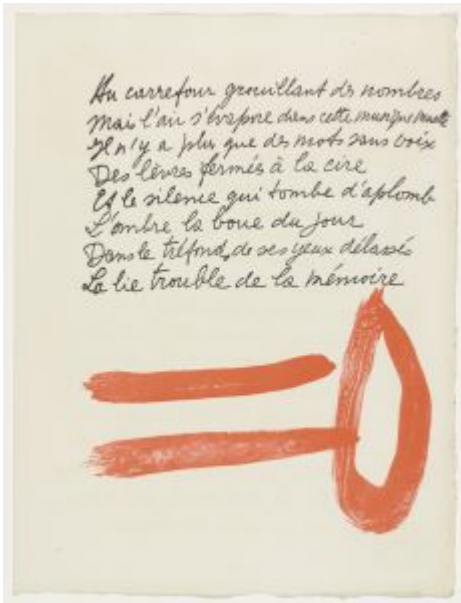 Au carrefour grouillant des nombres
Mais l'air s'évapore dans cette musique muette
Il n'y a plus que des mots sans voix
Des lèvres fermés à la cire
Et le silence qui tombe d'aplomb
L'ombre la boue du jour
Dans le tréfond de ses yeux délassés
La lie trouble de la mémoire